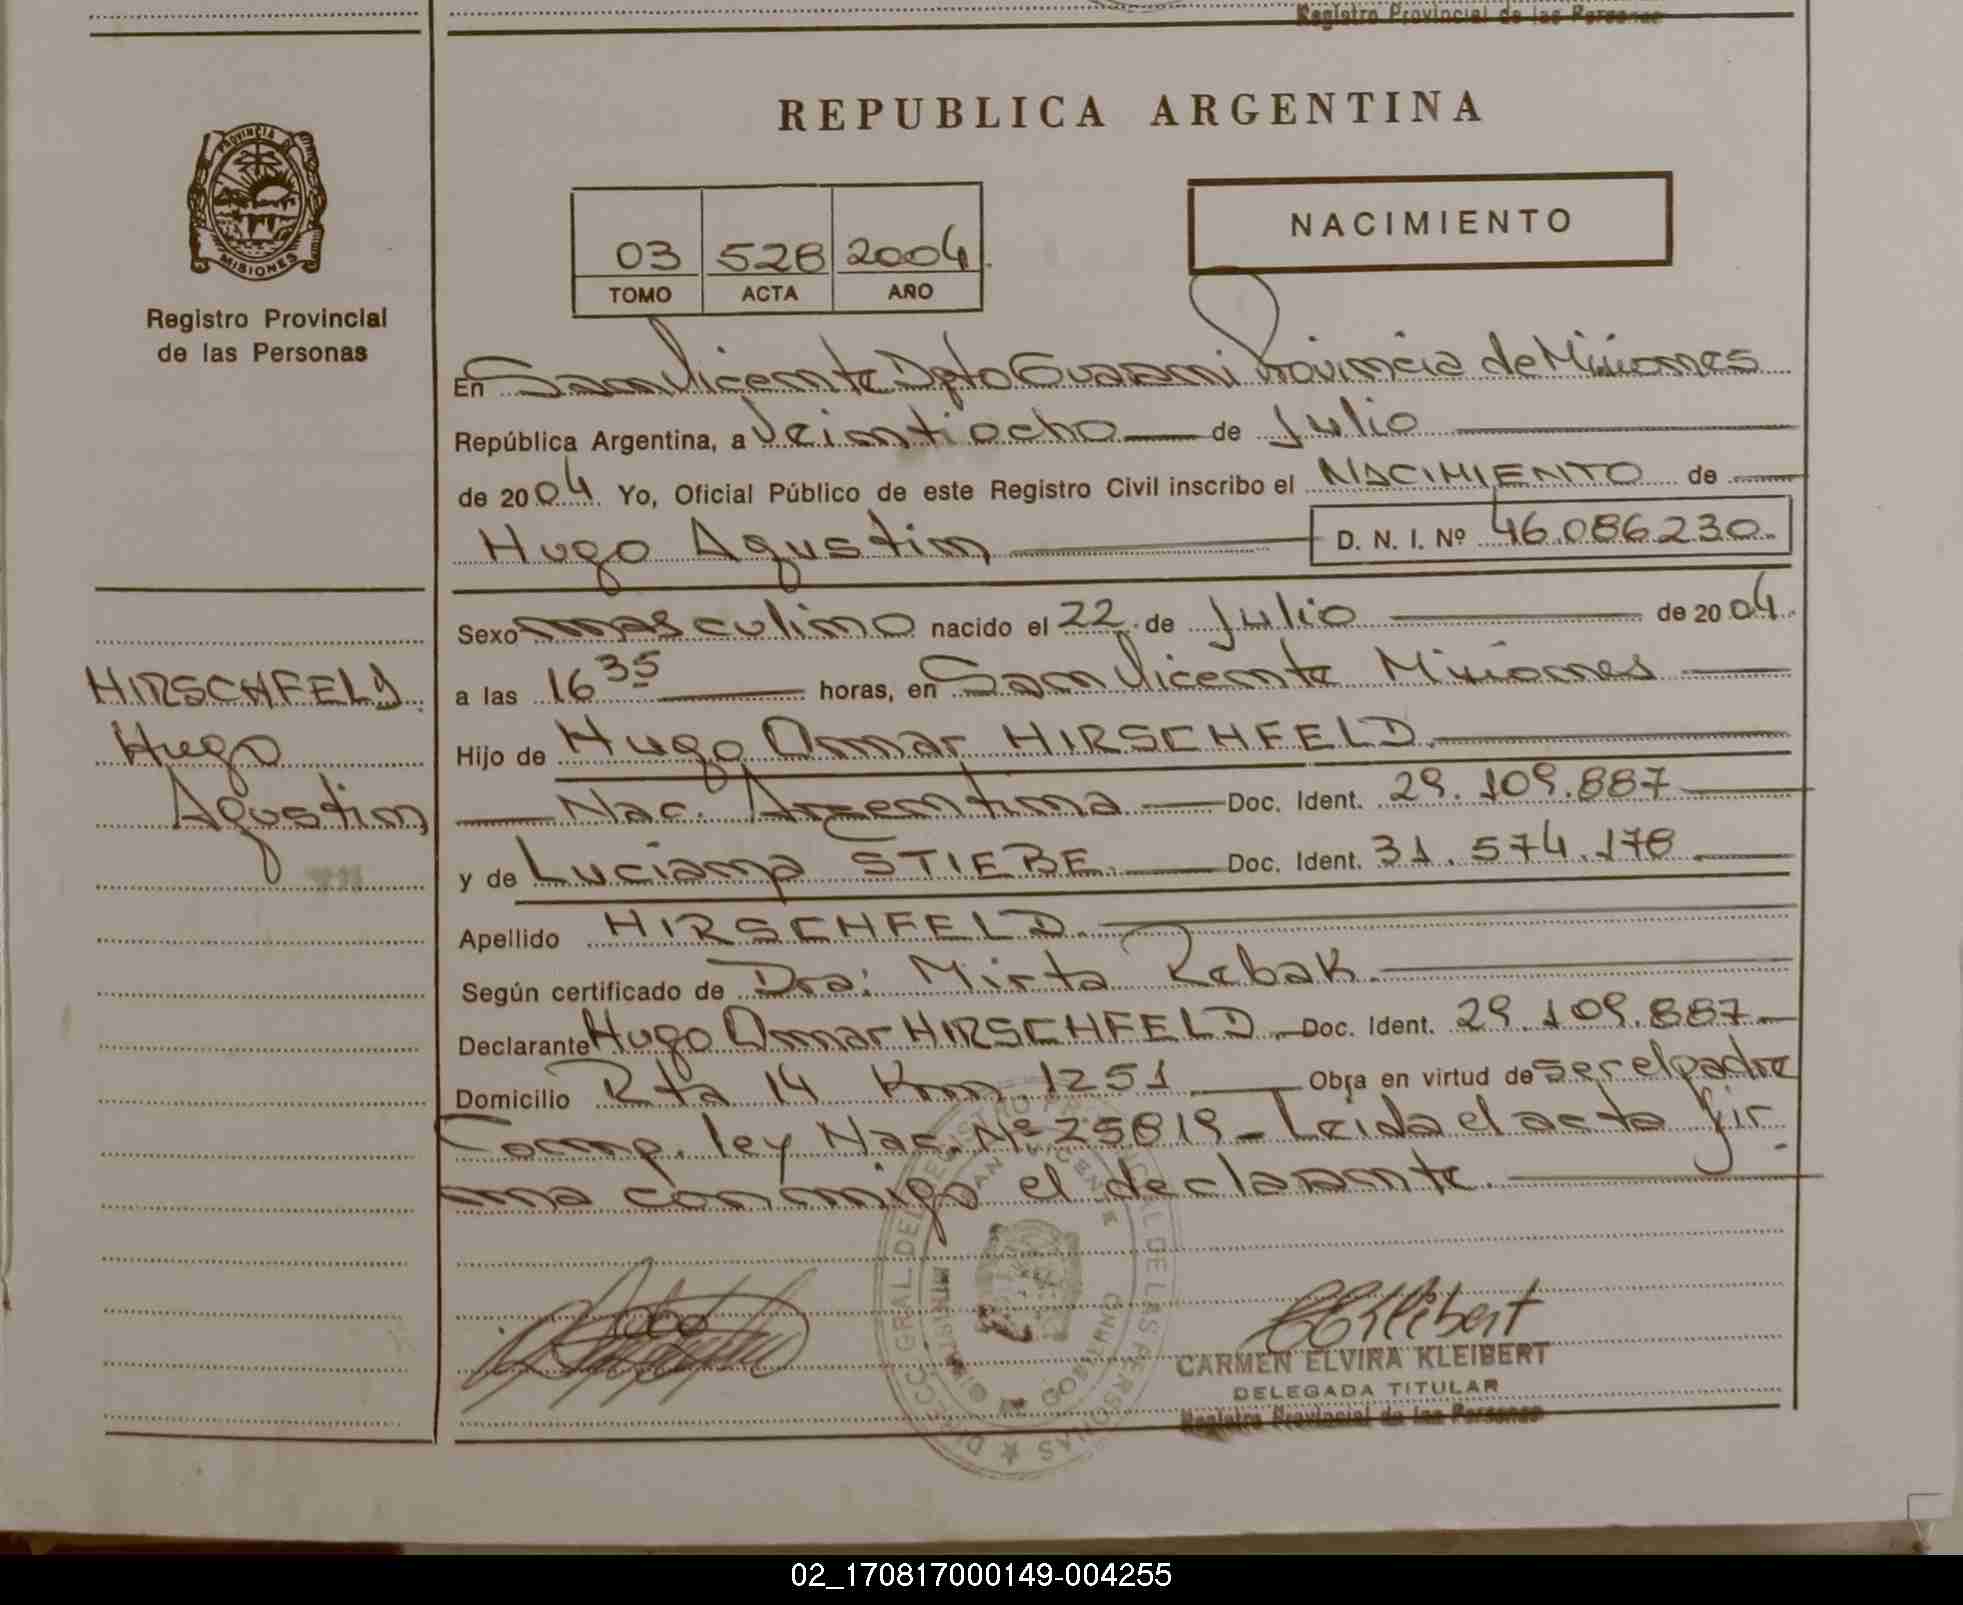 Registro Provincial de las Personas
REPUBLICA ARGENTINA
PROVINCIA DE
MISIONES
Registro Provincial
de las Personas
03 528 2004
TOMO ACTA AÑO
NACIMIENTO
En San Vicente Dpto Guarani Provincia de Misiones
República Argentina, a Veintiocho de Julio
de 2004 Yo, Oficial Público de este Registro Civil inscribo el NACIMIENTO de
Hugo Agustin D. N. I. Nº 46.086.230.
Sexo masculino nacido el 22 de Julio de 2004
a las 16 35 horas, en San Vicente Misiones
Hijo de Hugo Omar HIRSCHFELD.
Nac. Argentina Doc. Ident. 29.109.887
y de Luciana STIEBE. Doc. Ident. 31.574.178
Apellido HIRSCHFELD.
Según certificado de Dra: Mirta Rebak.
Declarante Hugo Omar HIRSCHFELD. Doc. Ident. 29.109.887
Domicilio Rta 14 Km. 1251 Obra en virtud de ser el padre
Comp. ley Nac. Nº 25819 - Leida el acta fir
ma conmigo el declarante.
HIRSCHFELD.
Hugo
Agustin
CEKleibert
CARMEN ELVIRA KLEIBERT
DELEGADA TITULAR
Registro Provincial de las Personas
02_170817000149-004255